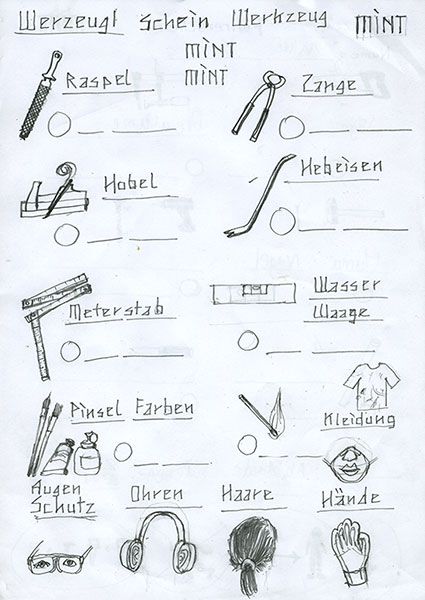 Werzeugt Schein Werkzeug MINT
MINT
MINT
Raspel
Zange
Hobel
Hebeisen
Meterstab
Wasser
Waage
Pinsel Farben
Kleidung
Augen
Schutz
Ohren
Haare
Hände